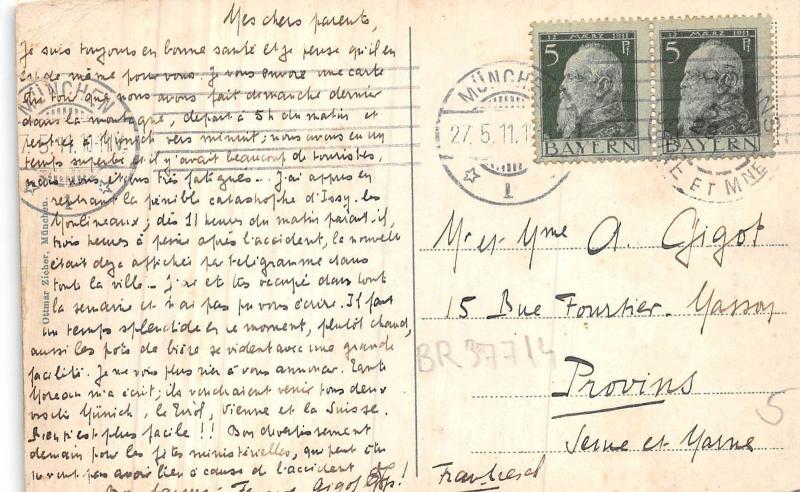 Mes chers parents,
Je suis toujours en bonne santé et je pense qu'il en
est de même pour vous. Je vous envoie une carte
que nous avons fait dimanche dernier
dans la montagne, départ à 5h du matin et
à Munich vers minuit; nous avons eu un
temps superbe et il y avait beaucoup de touristes,
mais nous étions très fatigués... J'ai appris en
rentrant la pénible catastrophe d'Issy-les
Moulineaux; dès 11 heures du matin paraît-il,
trois heures à peine après l'accident, la nouvelle
était déjà affichée par télégramme dans
toute la ville... J'ai été très occupé dans tout
la semaine et n'ai pas pu vous écrire. Il fait
un temps splendide en ce moment, plutôt chaud,
aussi les pots de bière se vident avec une grande
facilité. Je ne vois plus rien à vous annoncer. Tante
Moreau m'a écrit; ils voudraient venir tous deux
visiter Münich, le Tirol, Vienne et la Suisse.
Rien n'est plus facile!!! Bon divertissement
demain pour les fêtes ministérielles, qui peut être
n'auront pas avoir lieu à cause de l'accident
Gigot
Ottmar Zieher, München.
12 MÄRZ 1911
5 Pf
BAYERN
12 MÄRZ 1911
5 Pf
BAYERN
MÜNCHEN
27.5.11.
1
E ET MNE
Mr et Mme A. Gigot
15 Rue Fourtier-Masson
BR 377/4
Provins
5
Seine et Marne
Frankreich